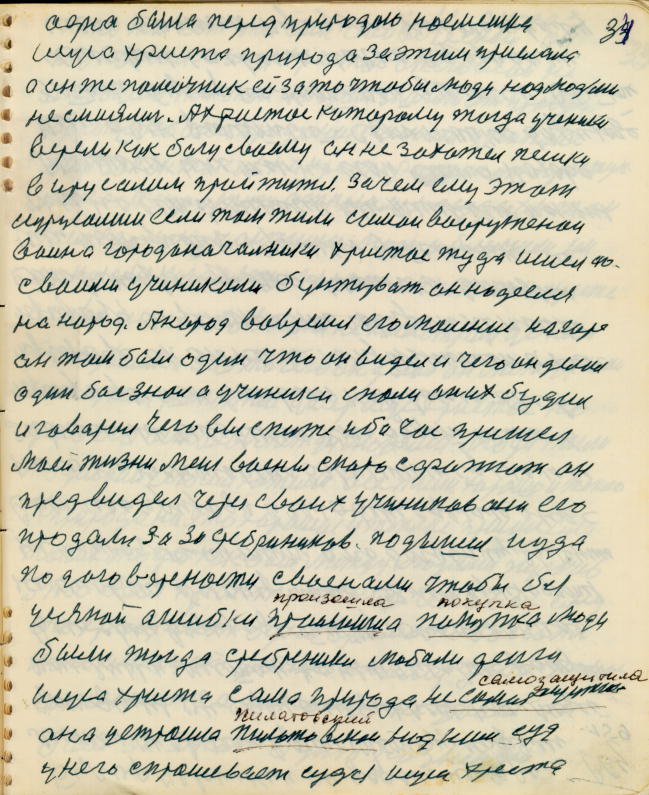 34
а одна была перед природою насмешка
исуса христа природа за этим прислала
а он же помочник ей за то чтобы люди над людьми
не смиялис. А христос которому тогда ученики
верели как богу своему он не захотел пешки
в ирусалим пройтити. Зачем ему этот
ирусалим если там жили самои вооружоной
воина городоначалники христос туда шел со
своими учиниками бунтуват он надеелся
на народ. А народ вовремя его моление на горе
он там был один что он видел и чего он делал
один бог знал а учиники спали он их будил
и говарил чего вы спите ибо час пришел
моей жизни меня воены скоро сфатют он
предвидел через своих учиников они его
продали за 30 сребряников. подышил иуда
по договорености с военами чтобы был
произошла покупка
уесной ашибки произошла покупка люди
были тогда сребреники любили денги
самозащитила
исуса христа сама природа не
пилатовский
она устроила пилатовский над ним суд
у него спрошевает судя исуса христа